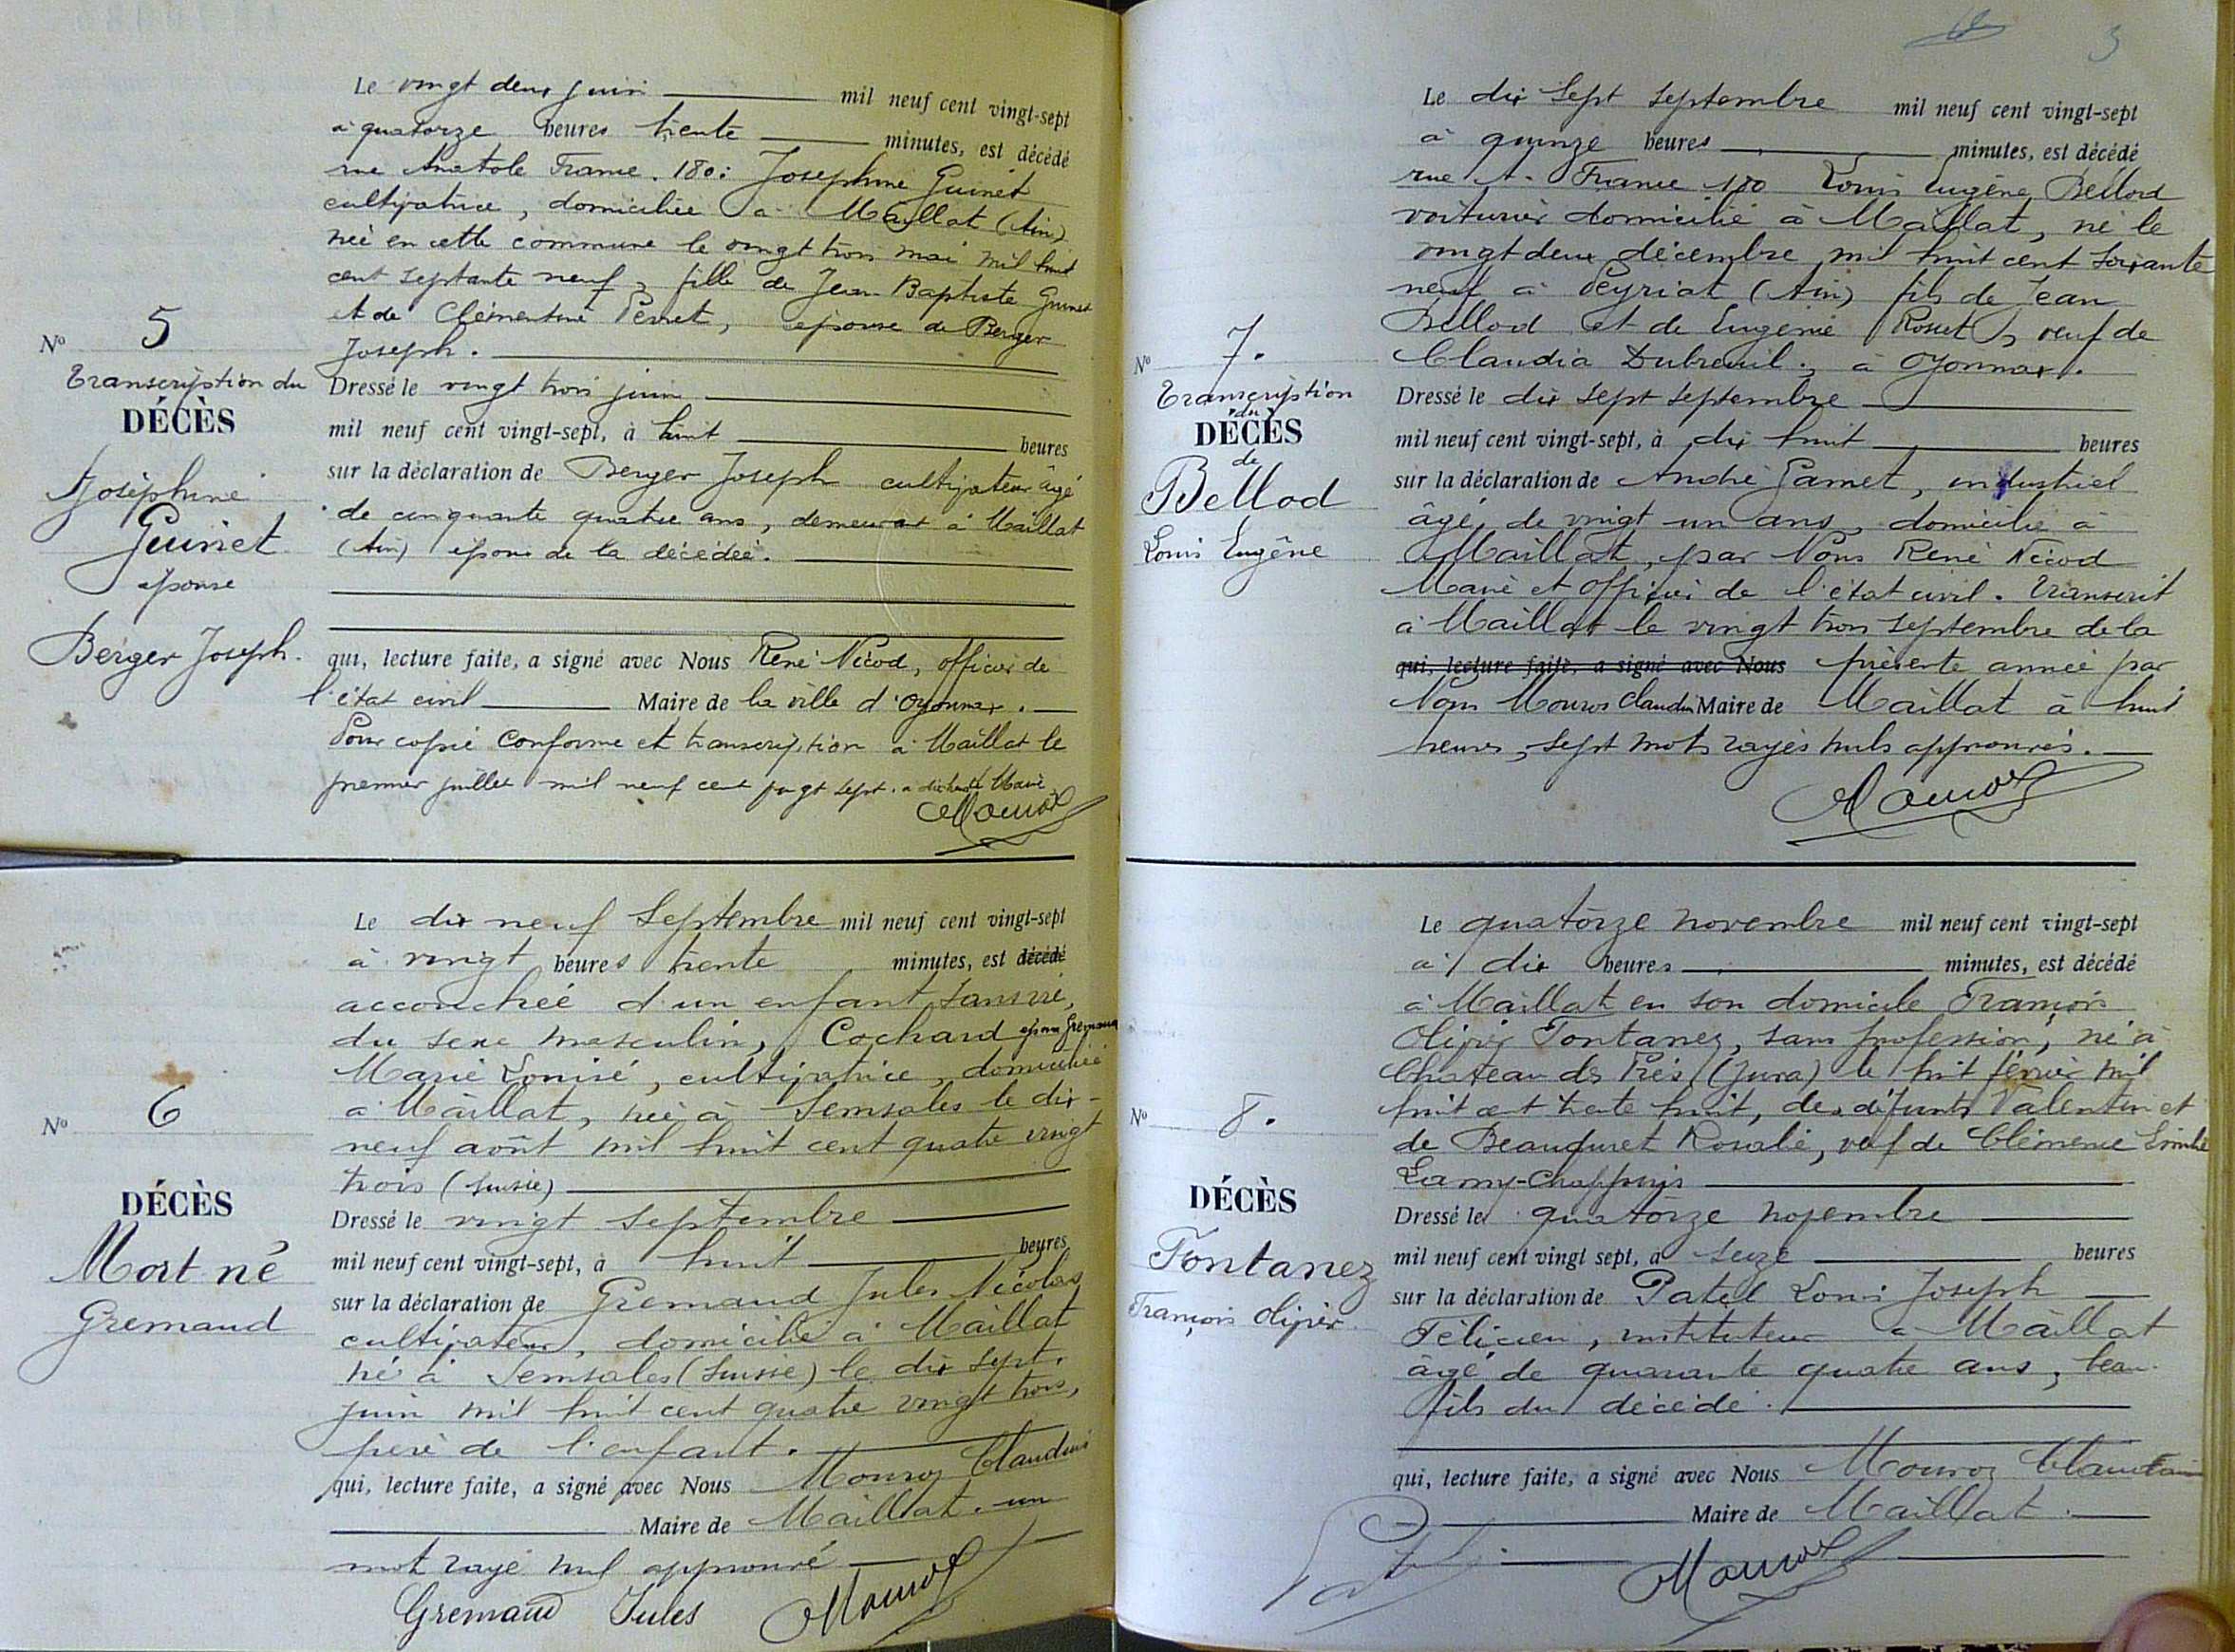 Le vingt deux juin mil neuf cent vingt-sept
à quatorze heures trente minutes, est décédé
rue Anatole France. 180: Joséphine Guinet
cultivatrice, domiciliée à Maillat (Ain)
née en cette commune le vingt trois mai mil huit
cent septante neuf, fille de Jean-Baptiste Guinet
et de Clémentine Perret, épouse de Berger
Joseph.
N° 5
Transcription du
DÉCÈS
Joséphine
Guinet
épouse
Berger Joseph.
Dressé le vingt trois juin
mil neuf cent vingt-sept, à huit heures
sur la déclaration de Berger Joseph cultivateur âgé
de cinquante quatre ans, demeurant à Maillat
(Ain) époux de la décédée.
qui, lecture faite, a signé avec Nous René Nicod, officier de
l'état civil Maire de la ville d'Oyonnax.
Pour copie conforme et transcription à Maillat le
premier juillet mil neuf cent vingt sept. à dix heures Maire
Mouroz
Le dix neuf Septembre mil neuf cent vingt-sept
à vingt heures trente minutes, est décédé
accouchée d'un enfant sans vie,
du sexe masculin, Cochard épouse Gremaud
Marie Louise, cultivatrice, domiciliée
à Maillat, née à Semsales le dix-
neuf août mil huit cent quatre vingt
trois (Suisse)
N° 6
DÉCÈS
Mort né
Gremaud
Dressé le vingt septembre
mil neuf cent vingt-sept, à huit heures
sur la déclaration de Gremaud Jules Nicolas
cultivateur, domicilié à Maillat
né à Semsales (Suisse) le dix sept.
juin mil huit cent quatre vingt trois,
père de l'enfant.
qui, lecture faite, a signé avec Nous Mouroz Claudius
Maire de Maillat. un
mot rayé nul approuvé
Gremaud Jules Mouroz
3
Le dix sept septembre mil neuf cent vingt-sept
à quinze heures minutes, est décédé
rue A. France 180 Louis Eugène Bellod
voiturier domicilié à Maillat, né le
vingt deux décembre mil huit cent soixante
neuf à Peyriat (Ain) fils de Jean
Bellod et de Eugénie Rosset, veuf de
Claudia Dubreuil., à Oyonnax.
N° 7.
Transcription
du
DÉCÈS
de
Bellod
Louis Eugène
Dressé le dix sept septembre
mil neuf cent vingt-sept, à dix huit heures
sur la déclaration de André Gamet, industriel
âgé, de vingt un ans, domicilié à
Maillat, par Nous René Nicod
Maire et officier de l'état civil. Transcrit
à Maillat le vingt trois septembre de la
qui, lecture faite, a signé avec Nous présente année par
Nous Mouroz Claudius Maire de Maillat à huit
heures, sept mots rayés nuls approuvés.
Mouroz
Le quatorze novembre mil neuf cent vingt-sept
à dix heures minutes, est décédé
à Maillat en son domicile François
Olivier Fontanez, sans profession, né à
Château des Prés (Jura) le huit février mil
huit cent trente huit, des défunts Valentin et
de Beauquret Rosalie, veuf de Clémence Emilie
Lamy-Chappuis
N° 8.
DÉCÈS
Fontanez
François Olivier
Dressé le quatorze novembre
mil neuf cent vingt sept, à seize heures
sur la déclaration de Patel Louis Joseph
Félicien, instituteur à Maillat
âgé de quarante quatre ans, beau-
fils du décédé.
qui, lecture faite, a signé avec Nous Mouroz Claudius
Maire de Maillat.
Patel Mouroz